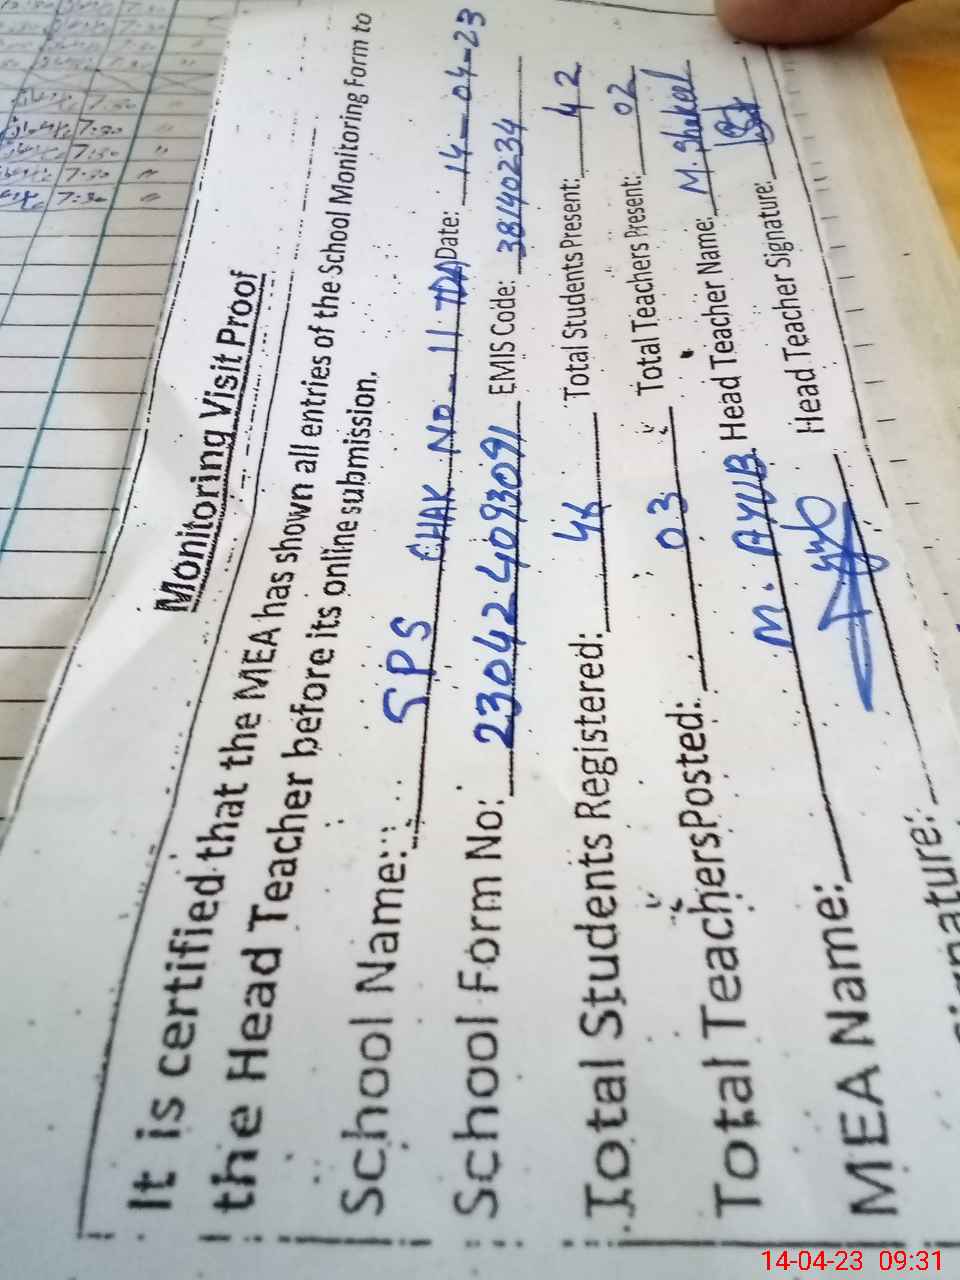 Monitoring Visit Proof
It is certified that the MEA has shown all entries of the School Monitoring Form to
the Head Teacher before its online submission.
School Name: GPS CHAK NO-11 TDA Date: 14-04-23
School Form No: 230424093091 EMIS Code: 38140234
Total Students Registered: 46 Total Students Present: 42
Total Teachers Posted: 03 Total Teachers Present: 02
MEA Name: M. AYUB Head Teacher Name: M. Shakeel
Signature: Head Teacher Signature:
7:30
7:30
7:30
7:30
7:30
14-04-23 09:31